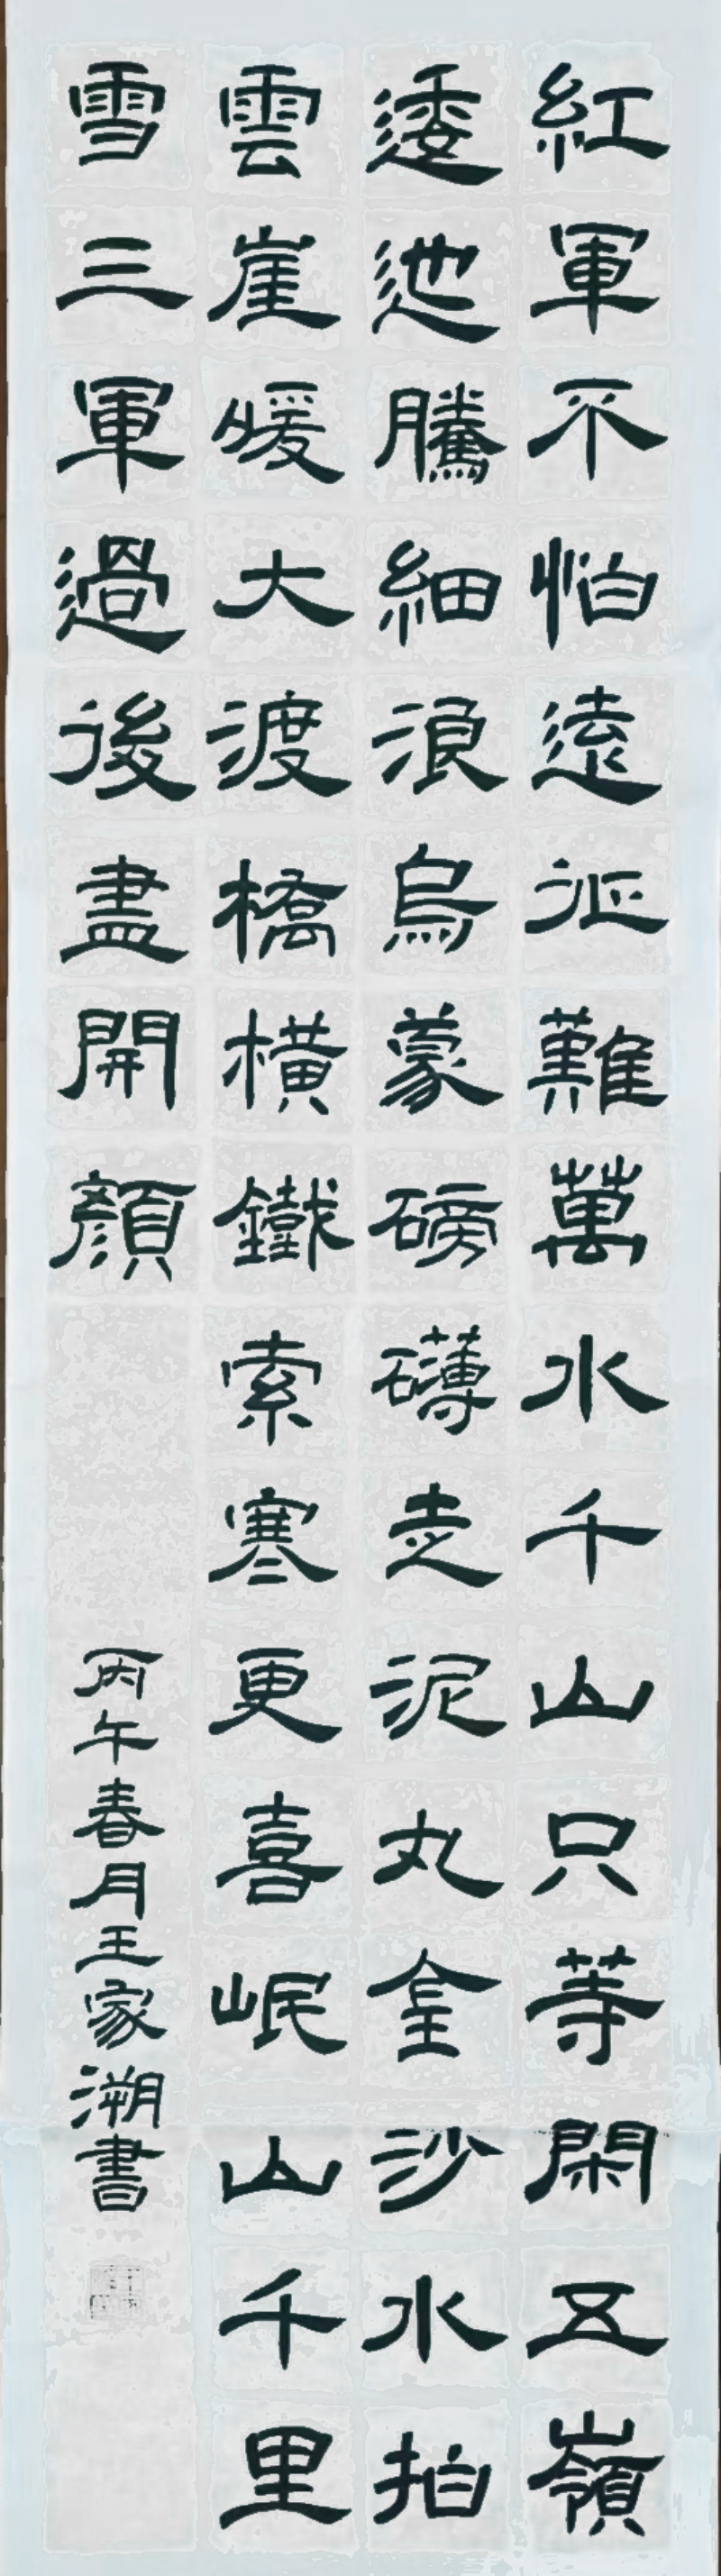 紅軍不怕遠征難萬水千山只等閑五嶺
逶迤騰細浪烏蒙磅礴走泥丸金沙水拍
雲崖暖大渡橋橫鐵索寒更喜岷山千里
雪三軍過後盡開顏
丙午春月王家溯書